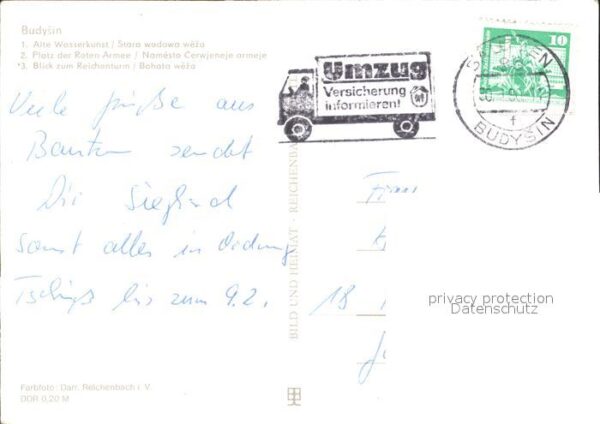 Budyšin
1. Alte Wasserkunst / Stara wodowa wěža
2. Platz der Roten Armee / Naměsto Čerwjeneje armeje
*3. Blick zum Reichenturm / Bohata wěža
Umzug
Versicherung
informieren!
10
BUDYŠIN
f
Viele Grüße aus
Bautzen sendet
Dir Sieglind
sonst alles in Ordnung
Tschüß bis zum 9.2.
BILD UND HEIMAT · REICHENBA
Frau
18
privacy protection
Datenschutz
Farbfoto: Darr, Reichenbach i. V.
DDR 0,20 M